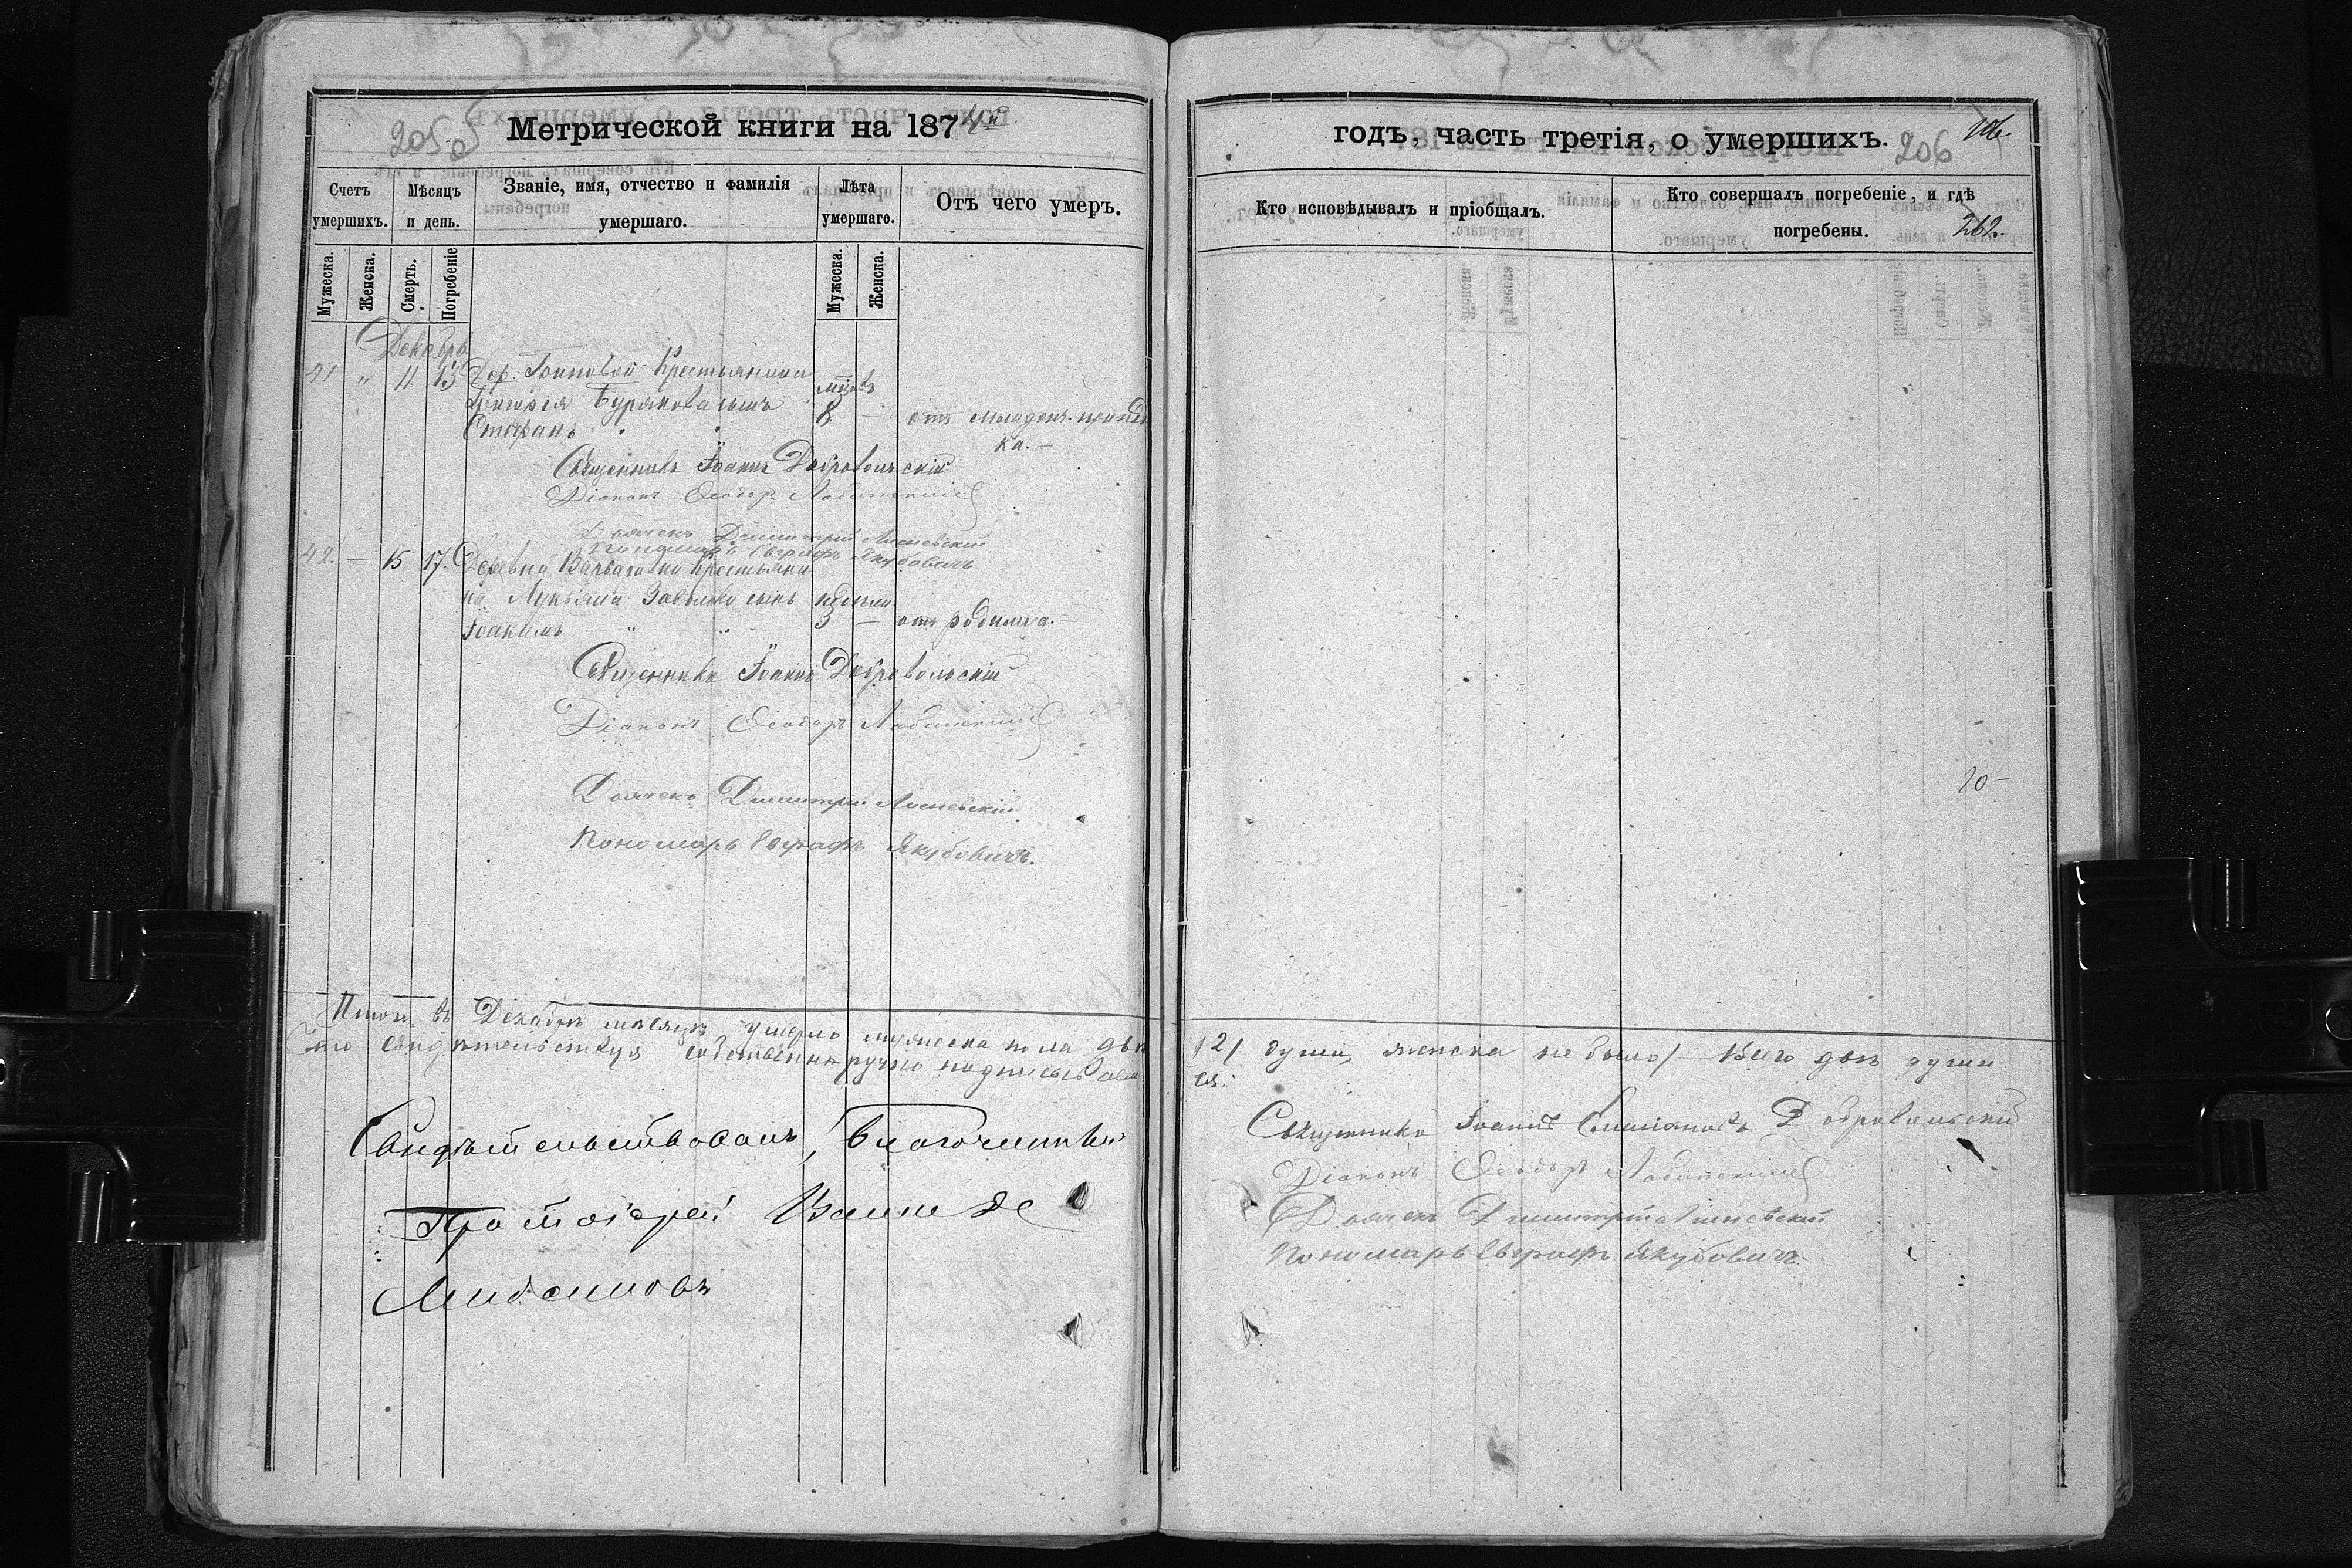 205 об
Метрической книги на 1874й
Счетъ умершихъ.
Мѣсяцъ и день.
Званіе, имя, отчество и фамилія умершаго.
Лѣта умершаго.
Отъ чего умеръ.
Мужеска.
Женска.
Смерть.
Погребеніе
Мужеска.
Женска.
Декабрь
41 " 11 13 Дер. Крестьянина
сынъ 8 — отъ младенч.
Стефанъ ка.—
Священникъ Іоаннъ Добровольскій
Діаконъ Ѳеодоръ
Дьячекъ Димитрій
Пономарь Евграфъ Якубовичъ
42. — 15 17. Деревни Крестьяни
на Лукьяна сынъ недѣли
Іоакимъ — " " — 3 — отъ родимца.—
Священникъ Іоаннъ Добровольскій
Діаконъ Ѳеодоръ
Дьячекъ Димитрій
Пономарь Евграфъ Якубовичъ.
Итого въ Декабрѣ мѣсяцѣ умерло мужеска пола двѣ
что свидѣтельствуя собственноручно подписываем
Свидѣтельствовалъ, благочинный
Протоіерей
годъ, часть третія, о умершихъ.
206
206.
262.
Кто исповѣдывалъ и пріобщалъ.
Кто совершалъ погребеніе, и гдѣ погребены.
10—
/2/ души, женска не было/— Всего двѣ души
ся.
Священникъ Іоаннъ Добровольскій
Діаконъ Ѳеодоръ
Дьячекъ Димитрій
Пономарь Евграфъ Якубовичъ.